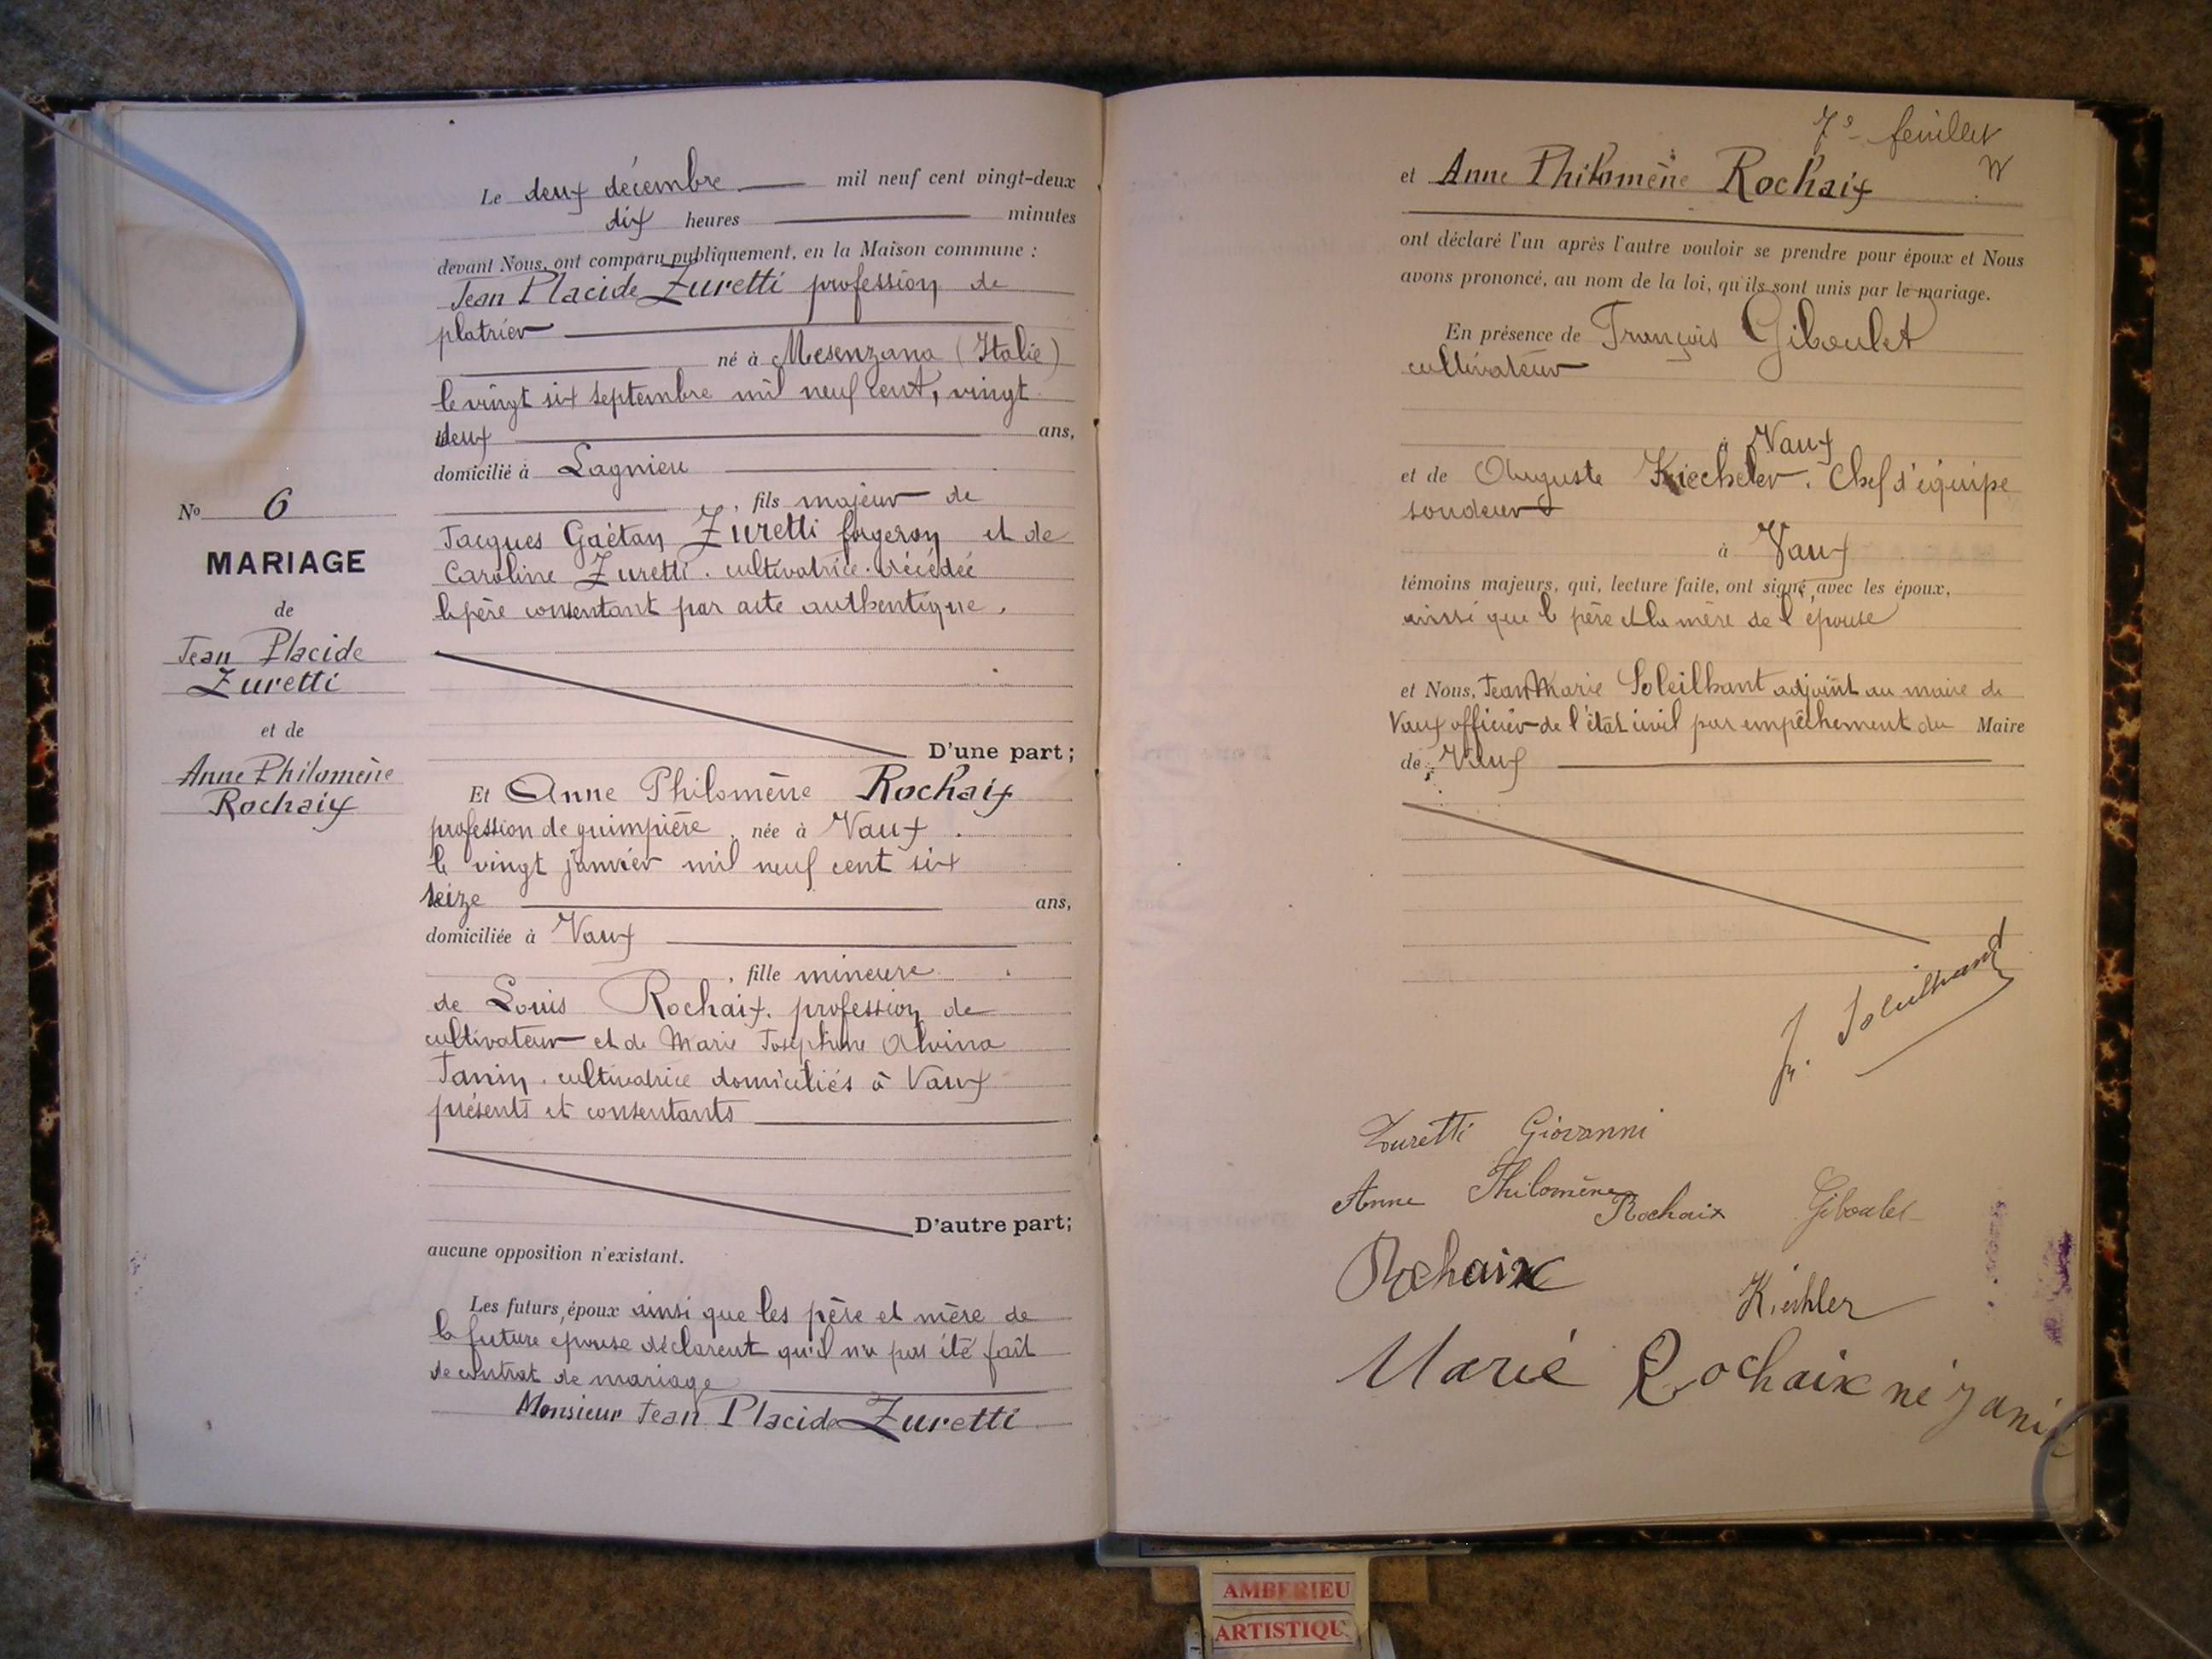 Le deux décembre mil neuf cent vingt-deux
dix heures minutes
devant Nous, ont comparu publiquement, en la Maison commune :
Jean Placide Zuretti profession de
platrier
né à Mesenzana (Italie)
le vingt six septembre mil neuf cent, vingt
deux ans,
domicilié à Lagnieu
, fils majeur de
Jacques Gaétan Zuretti forgeron et de
Caroline Zuretti. cultivatrice. décédée
le père consentant par acte authentique.
D'une part ;
Et Anne Philomène Rochaix
profession de guimpière, née à Vaux.
le vingt janvier mil neuf cent six
seize ans,
domiciliée à Vaux
, fille mineure
de Louis Rochaix. profession de
cultivateur et de Marie Joséphine Alvina
Janin. cultivatrice domiciliés à Vaux
présents et consentants
D'autre part;
aucune opposition n'existant.
Les futurs, époux ainsi que les père et mère de
la future epouse déclarent qu'il n'a pas été fait
de contrat de mariage
Monsieur Jean Placide Zuretti
No 6
MARIAGE
de
Jean Placide
Zuretti
et de
Anne Philomène
Rochaix
7e feuillet
et Anne Philomène Rochaix
ont déclaré l'un après l'autre vouloir se prendre pour époux et Nous
avons prononcé, au nom de la loi, qu'ils sont unis par le mariage.
En présence de François Giboulet
cultivateur
à Vaux
et de Auguste Kiecheler. Chef d'équipe
sondeur
à Vaux
témoins majeurs, qui, lecture faite, ont signé, avec les époux,
ainsi que le père et la mère de l'épouse
et Nous, Jean Marie Soleilhant adjoint au maire de
Vaux officier de l'état civil par empêchement du Maire
de Vaux
J. Soleilhant
Zuretti Giovanni
Anne Philomène Rochaix Giboulet
Rochaix
Kiehler
Marie Rochaix né Janin
AMBERIEU
ARTISTIQU